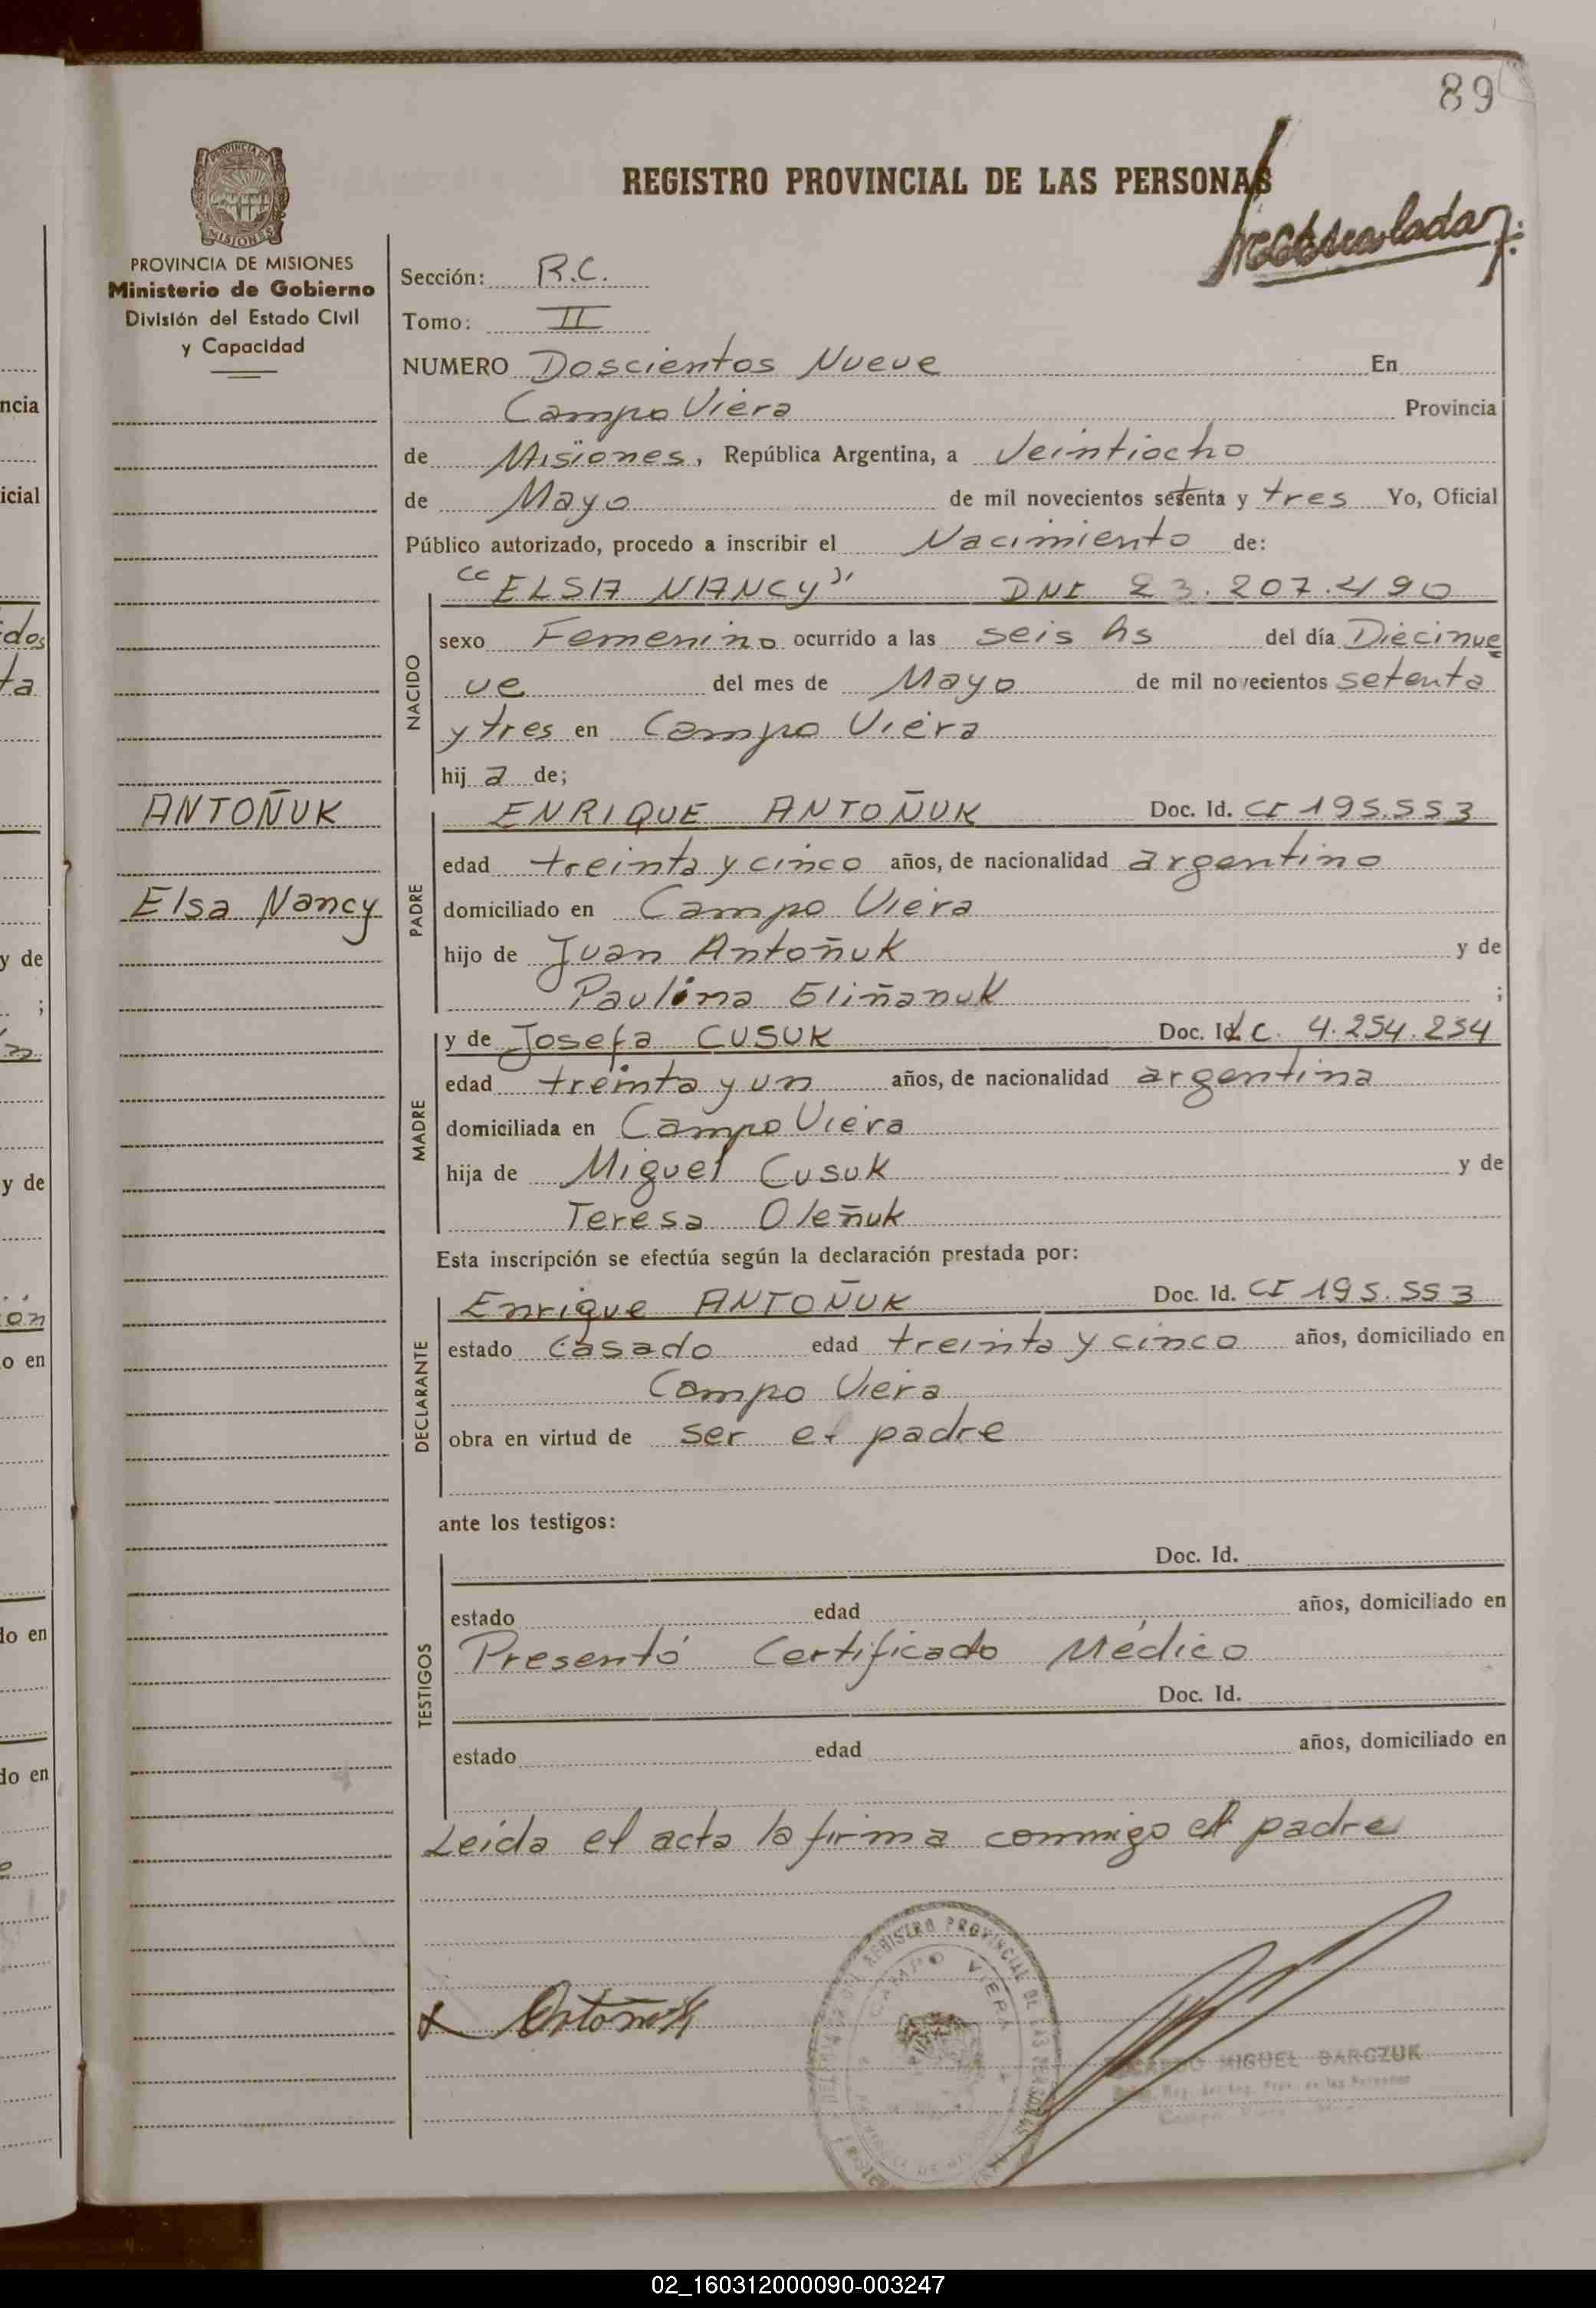 89
REGISTRO PROVINCIAL DE LAS PERSONAS
PROVINCIA DE
MISIONES
PROVINCIA DE MISIONES
Ministerio de Gobierno
División del Estado Civil
y Capacidad
Sección: R.C.
Tomo: II
NUMERO Doscientos Nueve En
Campo Viera Provincia
de Misiones, República Argentina, a Veintiocho
de Mayo de mil novecientos setenta y tres Yo, Oficial
Público autorizado, procedo a inscribir el Nacimiento de:
NACIDO
"ELSA NANCY" DNI 23.207.490
sexo Femenino ocurrido a las seis hs del día Diecinue
ve del mes de Mayo de mil novecientos setenta
y tres en Campo Viera
hija de;
ANTOÑUK
Elsa Nancy
PADRE
ENRIQUE ANTOÑUK Doc. Id. CI 195.553
edad treinta y cinco años, de nacionalidad argentino
domiciliado en Campo Viera
hijo de Juan Antoñuk y de
Paulina Gliñanuk ;
MADRE
y de Josefa CUSUK Doc. Id. L.C. 4.254.254
edad treinta y un años, de nacionalidad argentina
domiciliada en Campo Viera
hija de Miguel Cusuk y de
Teresa Oleñuk
Esta inscripción se efectúa según la declaración prestada por:
DECLARANTE
Enrique ANTOÑUK Doc. Id. CI 195.553
estado casado edad treinta y cinco años, domiciliado en
Campo Viera
obra en virtud de ser el padre
ante los testigos:
TESTIGOS
Doc. Id.
estado edad años, domiciliado en
Presentó Certificado Médico
Doc. Id.
estado edad años, domiciliado en
Leida el acta la firma conmigo el padre
REGISTRO PROVINCIAL DE LAS PERSONAS
CAMPO VIERA
MIGUEL BARCZUK
02_160312000090-003247